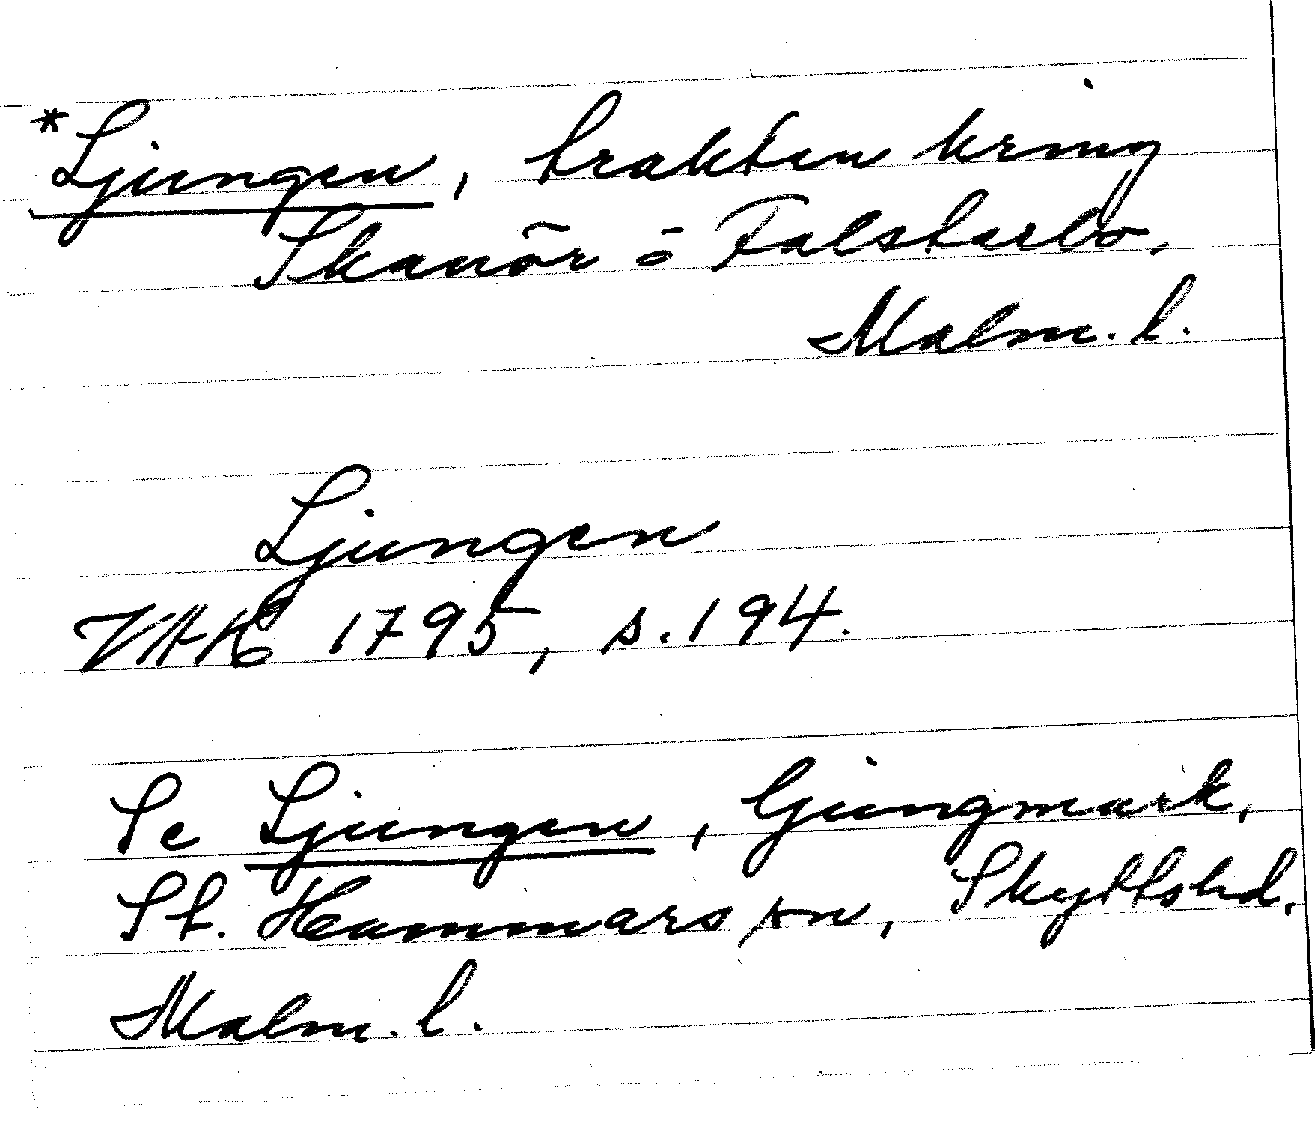 *Ljungen, trakten kring
Skanör o Falsterbo.
Malm. l.
Ljungen
VAH 1795, s. 194.
Se Ljungen, ljungmark,
St. Hammars sn, Skytts hd.
Malm. l.